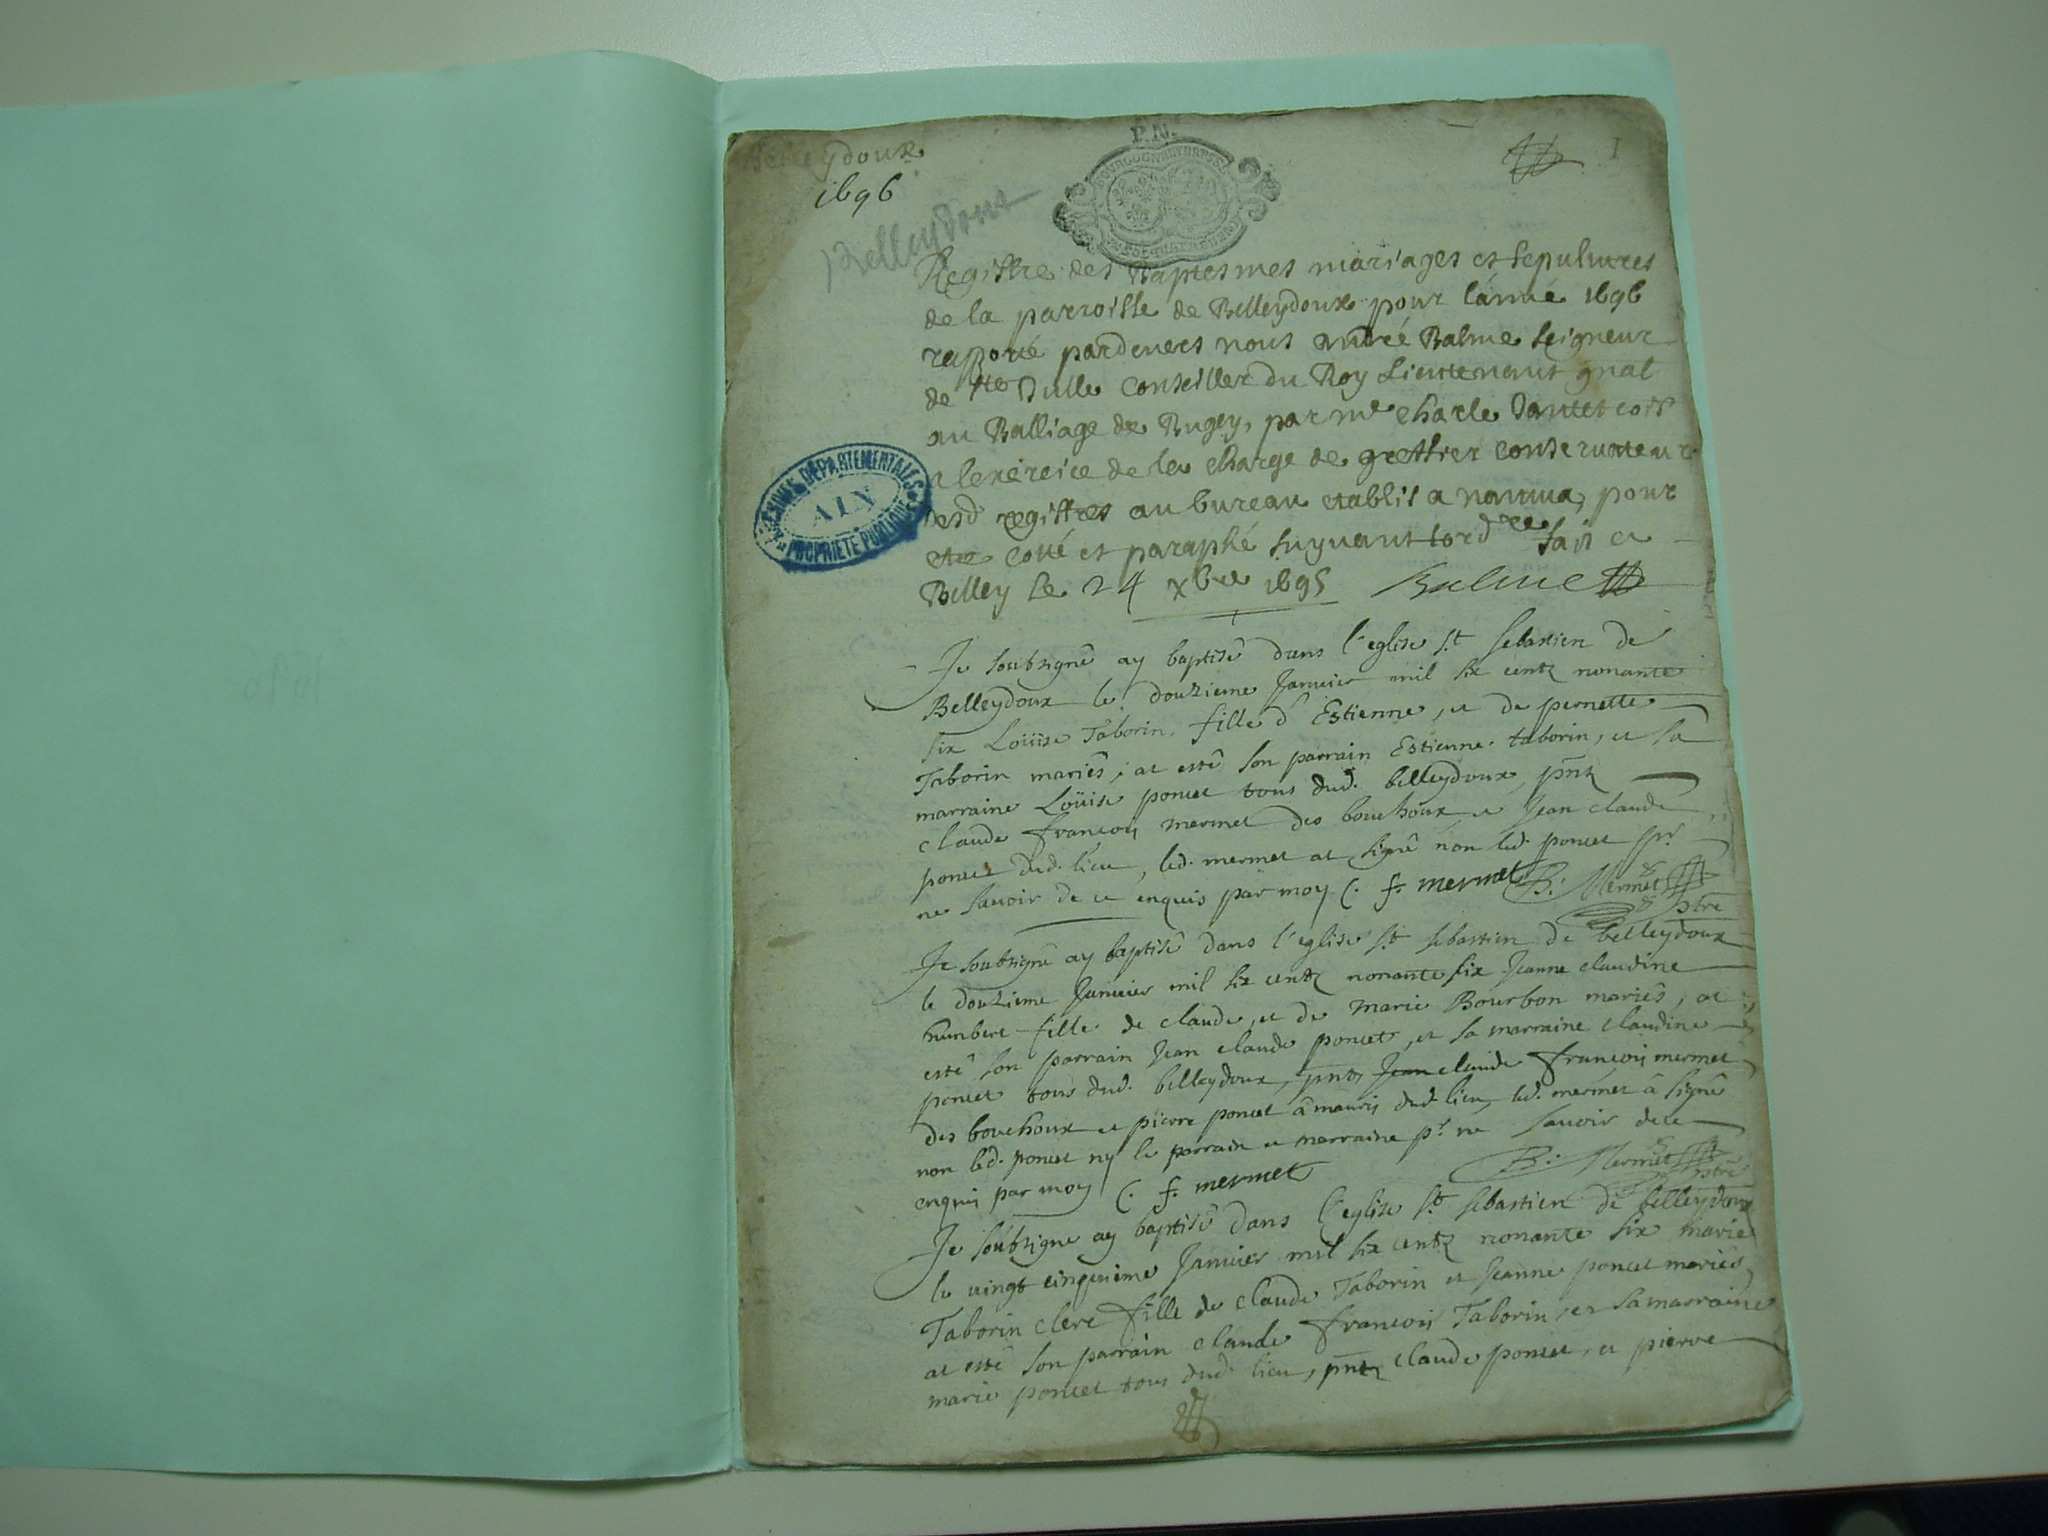 Belleydoux
1696
Belleydoux
P.N.
I
Registre des Baptesmes mariages et sepulures
de la parroisse de Belleydoux pour lánnée 1696
rapporté pardevers nous André Balme seigneur
de Ste Julle Conseiller du Roy Lieutenant gnal
au Balliage de Bugey, par me Charle
a lexercice de la charge de greffier conservateur
desd registres au bureau etablis a nantua, pour
etre cotté et paraphé suyvant lordce fait a
Belley le 24 xbre 1695 Balme
ARCHIVES DÉPARTEMENTALES
AIN
PROPRIÉTÉ PUBLIQUE
Je soubsigné ay baptisé dans l'eglise st sebastien de
Belleydoux le douzieme Janvier mil six centz nonante
six Loüise Taborin, fille d'Estienne, et de pernette
Taborin mariés, at esté son parrain Estienne taborin, et sa
marraine Loüise poncet tous dud. belleydoux, pntz
claude françois mermet des bouchoux et Jean claude
poncet dud. lieu, led. mermet at signé non led. poncet pr.
ne savoir de ce enquis par moy C. f. mermet B: Mermet
ptre
Je soubsigné ay baptisé dans l'eglise st sebastien de belleydoux
le douzieme Janvier mil six centz nonante six Jeanne claudine
humbert fille de claude, et de marie Bourbon mariés, at
esté son parrain Jean claude poncet, et sa marraine claudine
poncet tous dud. belleydoux, pntz Jean claude françois mermet
des bouchoux et pierre poncet dud. lieu, led. mermet â signé
non led. poncet ny le parrain et marraine pr. ne savoir de ce
enquis par moy C. f. mermet B: Mermet ptre
Je soubsigné ay baptisé dans l'eglise st sebastien de belleydoux
le vingt cinquieme Janvier mil six centz nonante six marie
Taborin clerc fille de claude Taborin et Jeanne poncet mariés,
at esté son parrain claude françois Taborin, et sa marraine
marie poncet tous dud. lieu, pntz claude poncet, et pierre